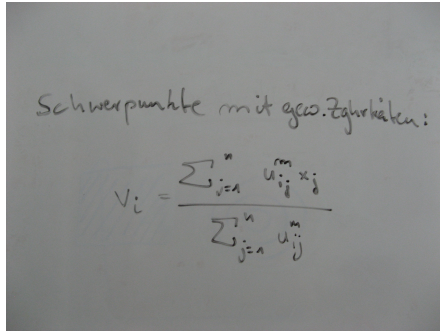 Schwerpunkte mit gew. Zghrkäten:
v_i = \frac{\sum_{j=1}^{n} u_{ij}^{m} x_j}{\sum_{j=1}^{n} u_{ij}^{m}}